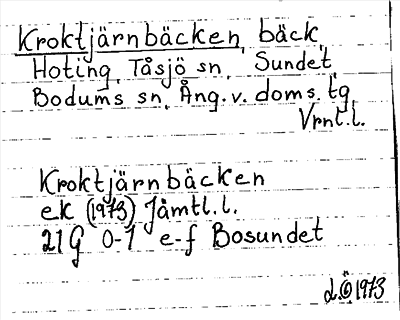 Kroktjärnbäcken, bäck,
Hoting, Tåsjö sn, Sundet,
Bodums sn, Ång. v. doms. tg
Vrnt. l.
Kroktjärnbäcken
ek (1973) Jämtl. l.
21G 0-1 e-f Bosundet
1973